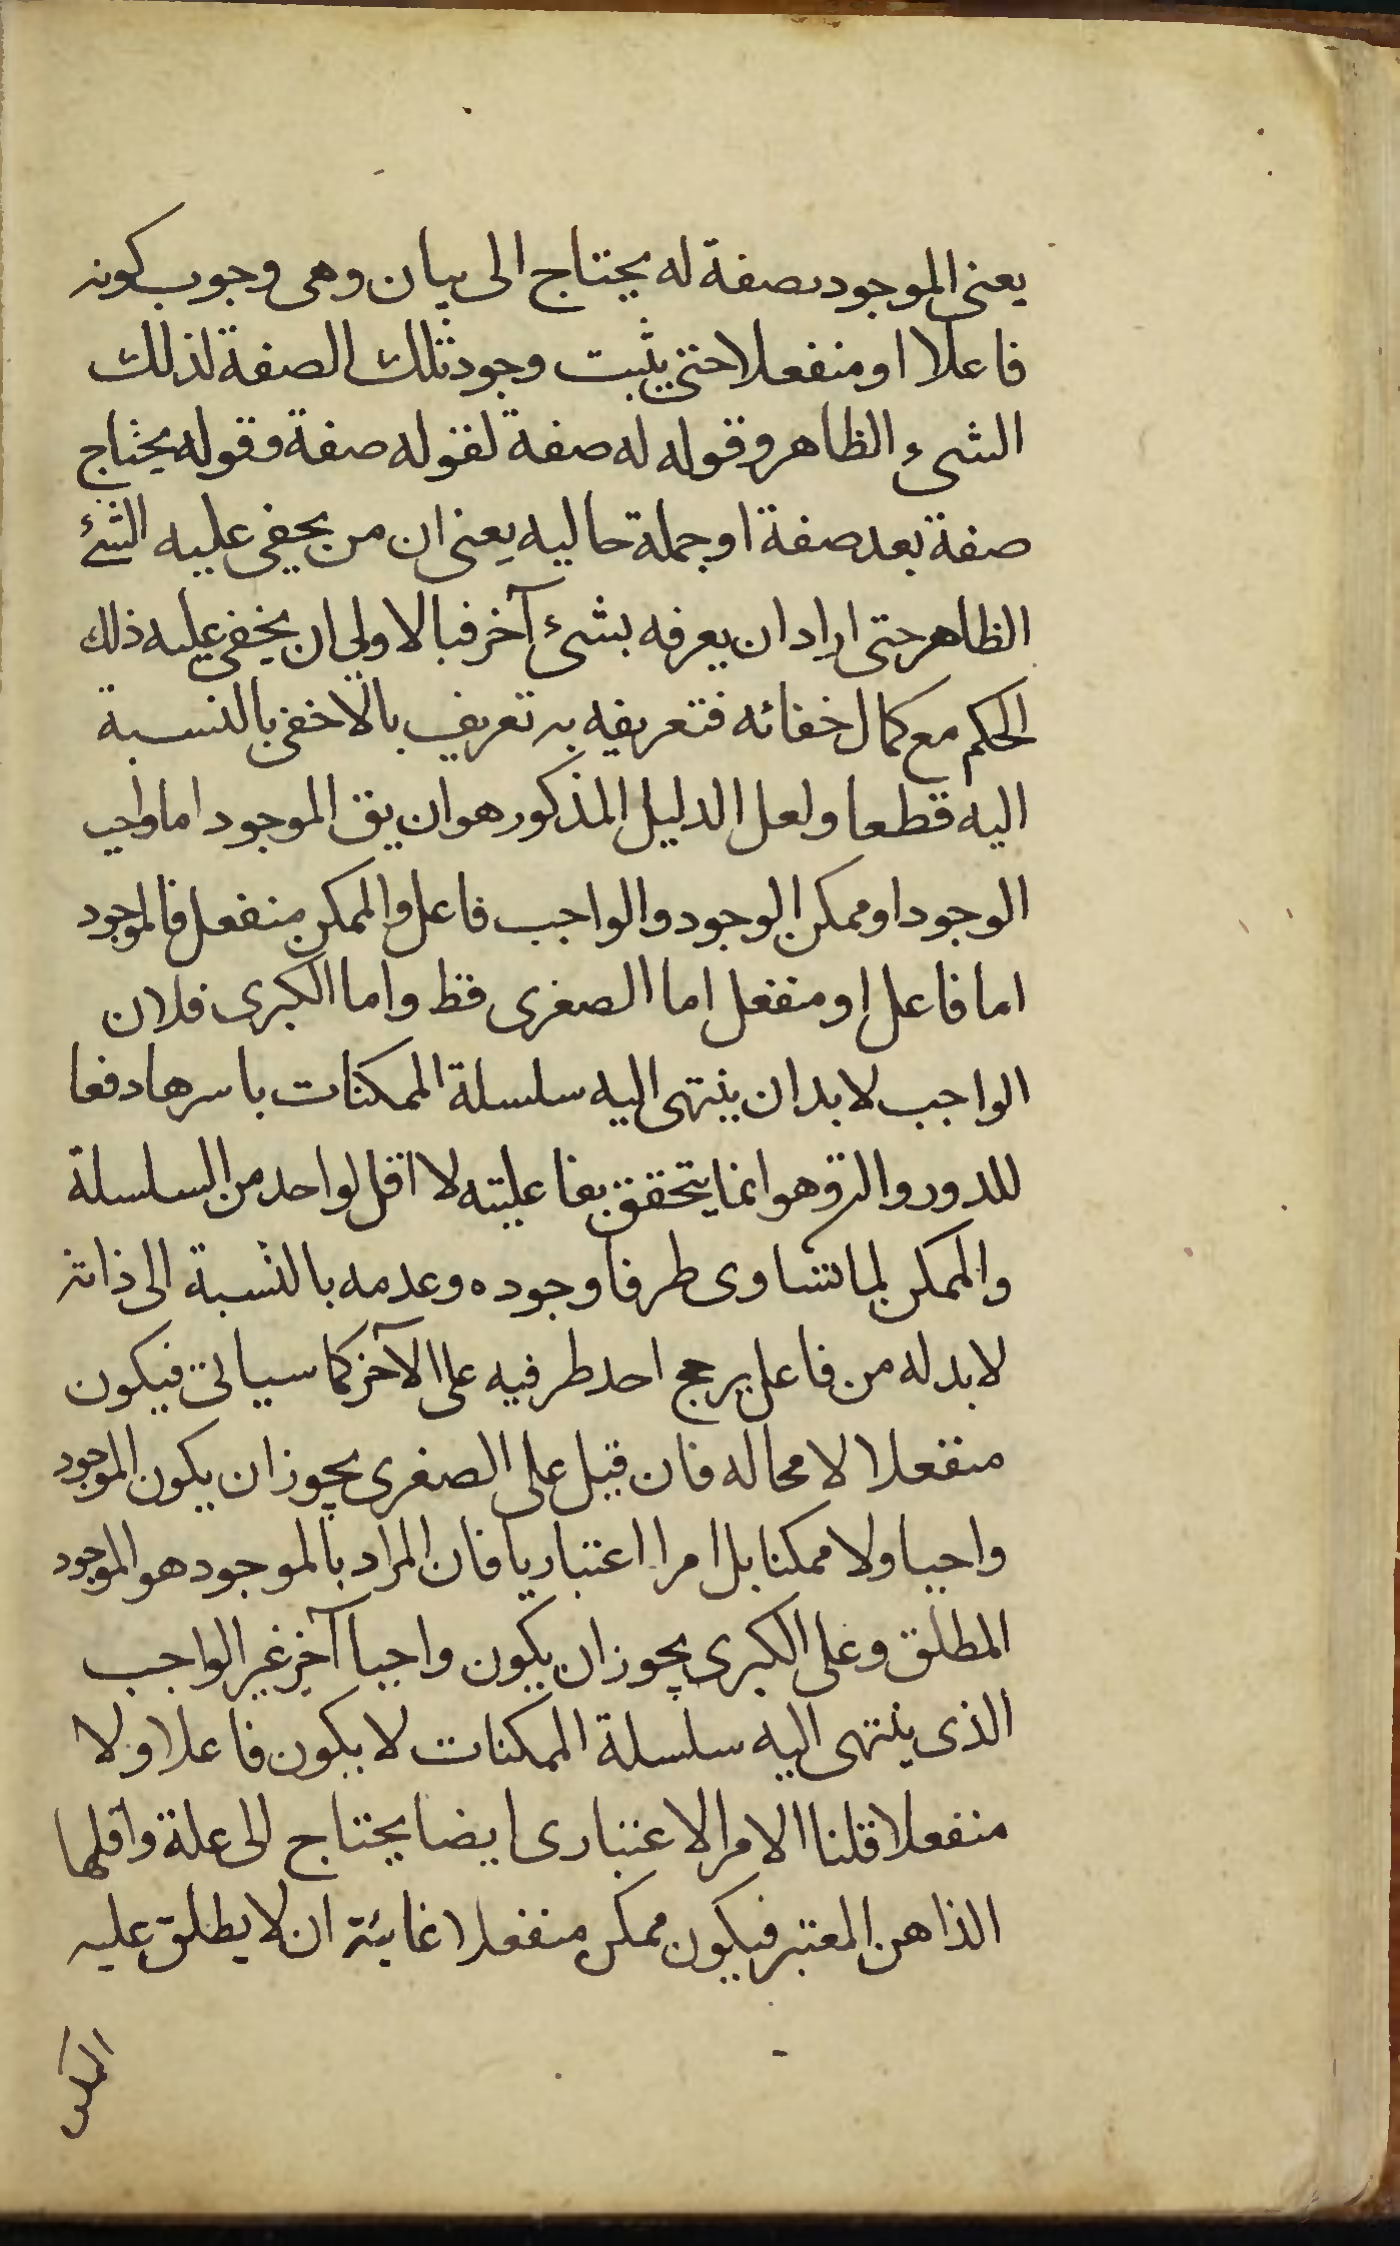 يعنى الموجود بصفة له يحتاج الى بيان وهى وجوب كونه
فاعلا او منفعلا حتى يثبت وجود تلك الصفة لذلك
الشىء الظاهر وقوله له صفة لقوله صفة وقوله يحتاج
صفة بعد صفة او جملة حاليه يعنى ان من يخفى عليه الشئ
الظاهر حتى اراد ان يعرفه بشئ آخر فبالاولى ان يخفى عليه ذلك
الحكم مع كمال خفائه فتعريفه به تعريف بالاخفى بالنسبة
اليه قطعا ولعل الدليل المذكور هو ان يق الموجود اما واجب
الوجود او ممكن الوجود والواجب فاعل والممكن منفعل فالموجود
اما فاعل او منفعل اما الصغرى فظ واما الكبرى فلان
الواجب لابد ان ينتهى اليه سلسلة الممكنات باسرها دفعا
للدور والتس وهو انما يتحقق بفاعليته لا اقل لواحد من السلسلة
والممكن لما تساوى طرفا وجوده وعدمه بالنسبة الى ذاته
لابد له من فاعل يرجح احد طرفيه على الآخر كما سياتى فيكون
منفعلا لا محاله فان قيل على الصغرى يجوز ان يكون الموجود
واجبا ولا ممكنا بل امرا اعتباريا فان المراد بالموجود هو الموجود
المطلق وعلى الكبرى يجوز ان يكون واجبا آخر غير الواجب
الذى ينتهى اليه سلسلة الممكنات لا يكون فاعلا ولا
منفعلا قلنا الامر الاعتبارى ايضا يحتاج الى علة واقلها
الذاهن المعتبر فيكون ممكن منفعلا غايته ان لا يطلق عليه